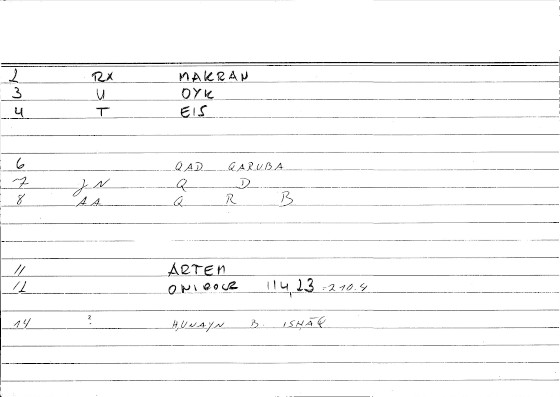 2 RX MAKRAN
3 U OYK
4 T EIS
6 QAD QARUBA
7 JN Q D
8 AA Q R B
11 ARTEM
12 114,23 = 210.4
14 ? HUNAYN B. ISHĀQ